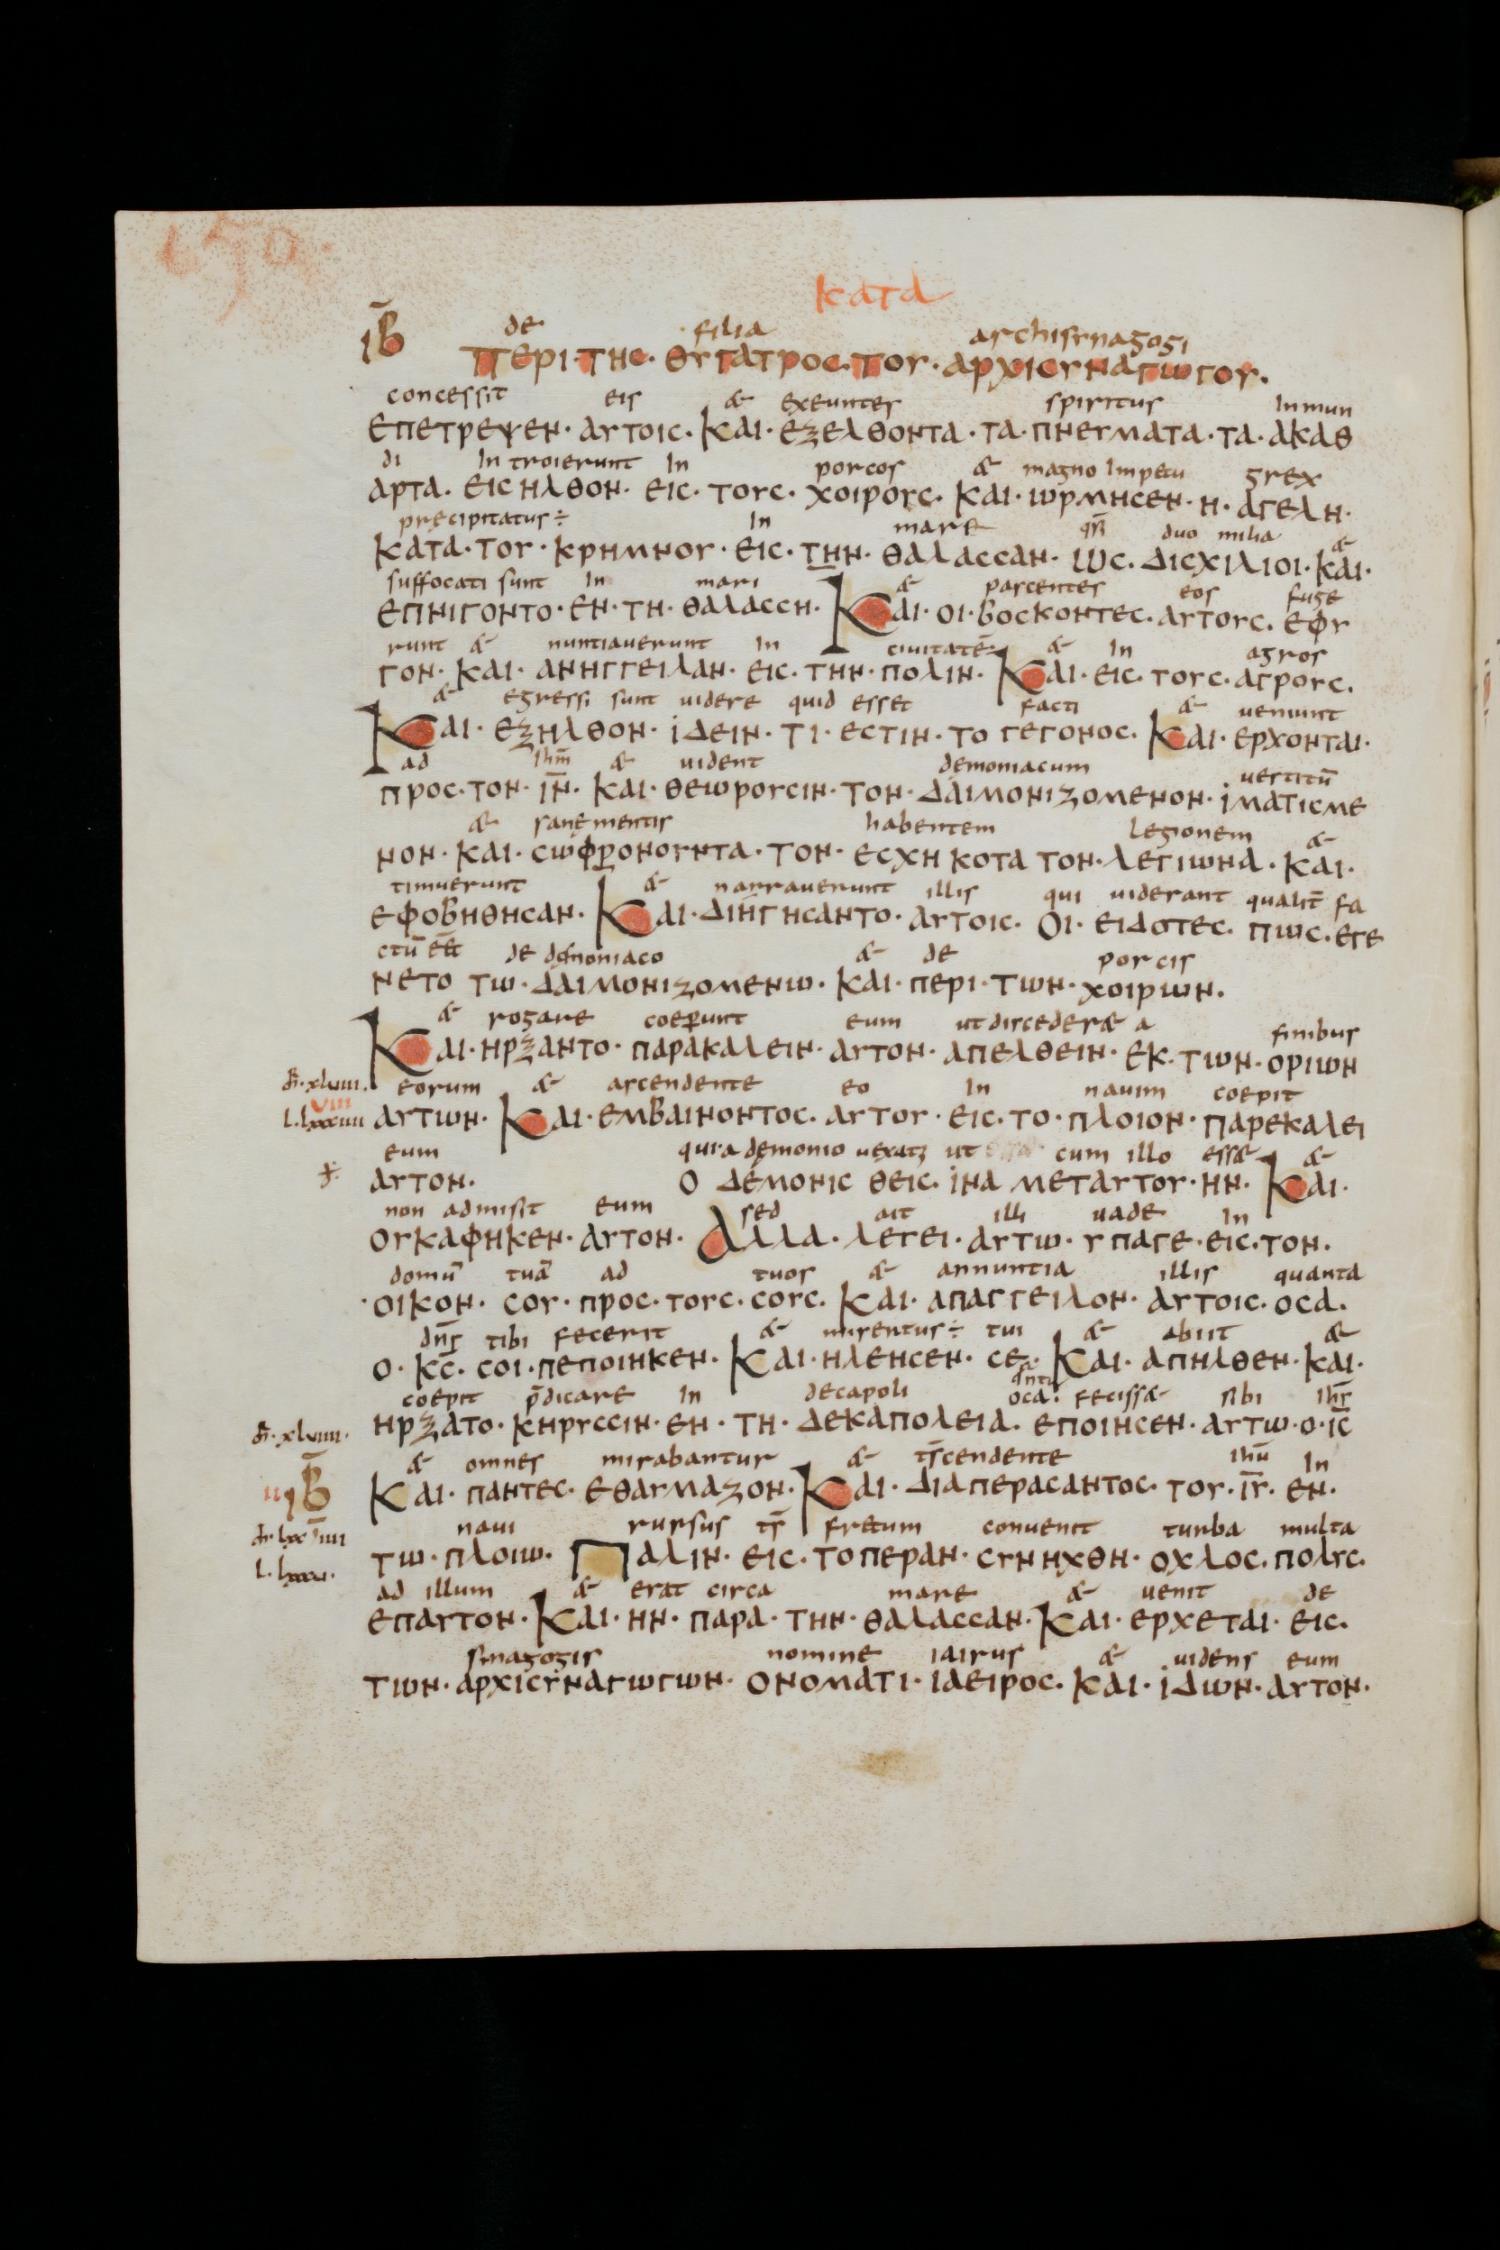 150.
κατα
ιβ̄
de filia archisynagogi
περι· της· θυγατρος· του· αρχισυναγωγου·
concessit eis & exeuntes spiritus Inmun
επετρεψεν· αυτοις· και· εξελθοντα· τα· πνευματα· τα· ακαθ
di Introierunt In porcos & magno Impetu grex
αρτα· εισηλθον· εις· τους· χοιρους· και· ωρμησεν· η· αγελη·
precipitatus÷ In mare qn̄ duo milia &
κατα· του· κρημνου· εις· την· θαλασσαν· ως· δισχιλιοι· και·
suffocati sunt In mari & pascentes eos fuge
επνιγοντο· εν· τη· θαλασση· Και· οι· βοσκοντες· αυτους· εφυ
runt & nuntiaverunt In civitatē & In agros
γον· και· ανηγγειλαν· εις· την· πολιν· Και· εις· τους· αγρους·
& egressi sunt videre quid esset facti & veniunt
Και· εξηλθον· ιδειν· τι· εστιν· το γεγονος· Και· ερχονται·
ad ihm̄ & vident demoniacum vestitū
προς· τον· ιν̄· και· θεωρουσιν· τον· δαιμονιζομενον· ιματισμε
& sane mentis habentem legionem &
νον· και· σωφρονουντα· τον· εσχηκοτα τον· λεγιωνα· και·
timuerunt & narraverunt illis qui viderant qualit̄ fa
εφοβηθησαν· Και· διηγησαντο· αυτοις· Οι· ειδοτες· πως· εγε
ctū eēt de demoniaco & de porcis
νετο τω· δαιμονιζομενω· και· περι· των· χοιρων·
& rogare coeperunt eum ut discederæ a finibus
Και· ηρξαντο· παρακαλειν· αυτον· απελθειν· εκ· των· οριων
eorum & ascendente eo In navim coepit
αυτων· Και· εμβαινοντος· αυτου· εις· το· πλοιον· παρεκαλει
eum quia demonio vexatꝫ ut cum illo essæ &
αυτον· Ο δεμονισ θεις· ινα μεταυτου· ην· Και·
non admisit eum sed ait illi vade In
ουκαφηκεν· αυτον· Αλλα· λεγει· αυτω· υπαγε· εις· τον·
domū tuā ad tuos & annuntia illis quanta
·οικον· σου· προς· τους· σους· και· απαγγειλον· αυτοις· οσα·
dn̄s tibi fecerit & mirentus÷ tui & abiit &
ο· κς̄· σοι· πεποιηκεν· Και· ηλεησεν· σε· Και· απηλθεν· και·
coepit p̄dicare In decapoli fecissæ sibi ihs̄
ηρξατο· κηρυσσιν· εν· τη· δεκαπολεια· οσα· εποιησεν· αυτω· ο· ις̄
& omnes mirabantur & ts̄cendente ihū In
Και· παντες· εθαυμαζον· Και· διαπερασαντος· του· ιῡ· εν·
navi rursus fretum convenit turba multa
τω· πλοιω· Παλιν· εις· τοπεραν· συνηχθη· οχλος· πολυς·
ad illum & erat circa mare & venit de
επαυτον· Και· ην· παρα· την· θαλασσαν· Και· ερχεται· εις·
sinagogis nomine iairus & videns eum
των· αρχισυναγωγων· ονοματι· ιαειρος· και· ιδων· αυτον·